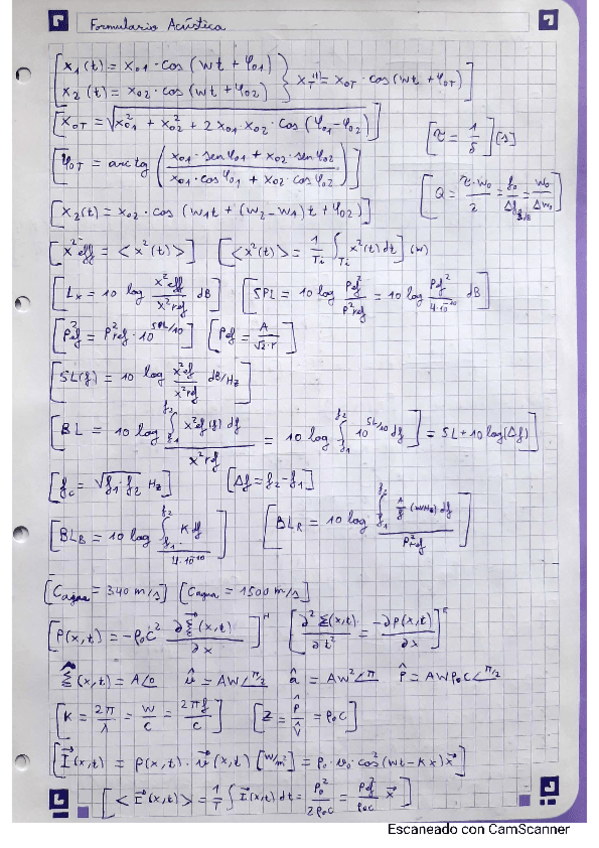 Formulario Acústica
[x₁(t) = x₀₁ · cos (wt + φ₀₁)
x₂(t) = x₀₂ · cos (wt + φ₀₂) } x_T(t) = x₀T · cos (wt + φ₀T)]
[x₀T = √(x₀₁² + x₀₂² + 2 x₀₁ · x₀₂ · cos (φ₀₁ - φ₀₂))]
[τ = 1/δ] [s]
[φ₀T = arctg ((x₀₁ · sen φ₀₁ + x₀₂ · sen φ₀₂)/(x₀₁ · cos φ₀₁ + x₀₂ · cos φ₀₂))]
[Q = (τ · w₀)/2 = f₀/Δf = w₀/Δw₀]
[x₂(t) = x₀₂ · cos (w₁t + (w₂ - w₁)t + φ₀₂)]
[x²eff = <x²(t)>] [<x²(t)> = 1/Ti ∫Ti x²(t) dt] (w)
[Lx = 10 log x²eff/x²ref dB] [SPL = 10 log P²ef/P²ref = 10 log Pef²/4·10⁻¹⁰ dB]
[P²ef = P²ref · 10^(SPL/10)] [Pef = A/(√2 · r)]
[SL(f) = 10 log x²ef/x²ref dB/Hz]
[BL = 10 log (∫f₁^f₂ x²ef(f) df)/x²ref = 10 log ∫f₁^f₂ 10^(SL/10) df] = SL + 10 log(Δf)]
[fc = √(f₁ · f₂) Hz] [Δf = f₂ - f₁]
[BL_B = 10 log (∫f₁^f₂ K df)/4·10⁻¹⁰] [BL_R = 10 log (∫f₁^f₂ 1/f (w/Hz) df)/P²ref]
[Cagua = 340 m/s] [Cagua = 1500 m/s]
[P(x,t) = -ρ₀c² ∂ξ(x,t)/∂x]ᴺ [∂²ξ(x,t)/∂t² = -∂p(x,t)/∂x]
ξ̂(x,t) = A∠0 v̂ = Aw∠π/2 â = Aw²∠π P̂ = Awρ₀c∠π/2
[K = 2π/λ = w/c = 2πf/c] [Z = P̂/V̂ = ρ₀c]
[I⃗(x,t) = p(x,t) · v⃗(x,t) [w/m²] = p₀ · v₀ · cos²(wt - kx) x⃗]
[<I⃗(x,t)> = 1/T ∫ I⃗(x,t) dt = p₀²/2ρ₀c = Pef²/ρ₀c x⃗]
Escaneado con CamScanner